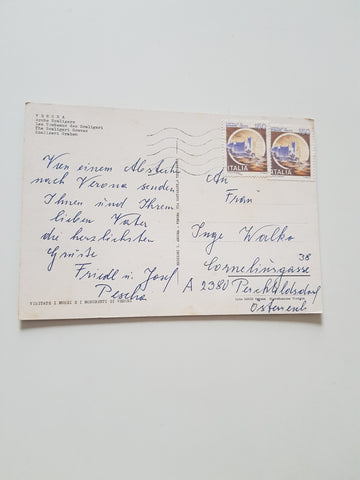 VERONA
Arche Scaligere
Les Tombeaux des Scaligeri
The Scaligeri Graves
Scaligeri Graben
Von einem Abstecher
nach Verona senden
Ihnen und Ihrem
lieben Vater
die herzlichsten
Grüße
Friedl u. Josef
Pescha
VISITATE I MUSEI E I MONUMENTI DI VERONA
ITALIA
ITALIA
An
Frau
Inge Walko
Cornelinsgasse 38
A 2380 Perchtoldsdorf
Österreich